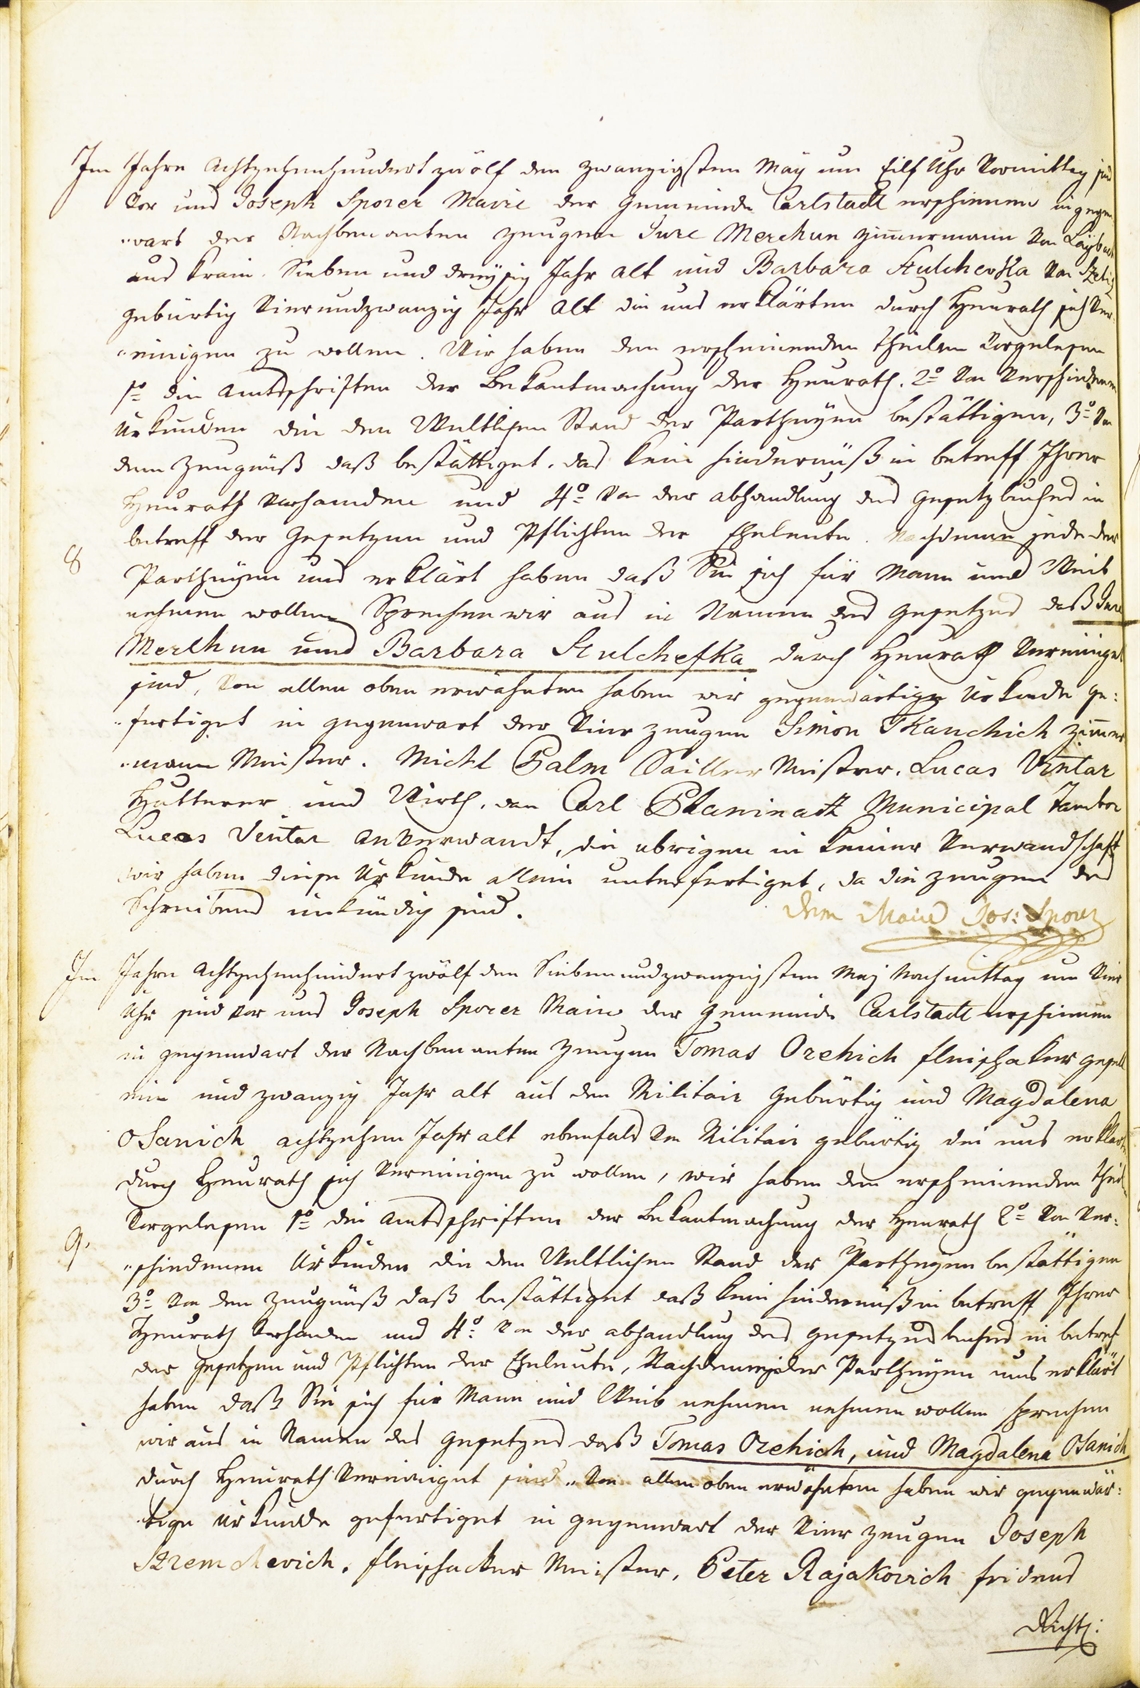 Im Jahre Achtzehenhundert zwölf den zwanzigsten May um Eilf Uhr Vormittag sind
Vor uns Joseph Sporer Maire der Gemeinde Carlstadt erschienen in gegen
"wart der Nachbenanten Zeugen Jure Merchun Zimmermann Von Laybach
aus Krain Sieben und dreysig Jahr alt und Barbara Stulchevka Von
gebürtig Vierundzwanzig Jahr alt die uns erklärten durch Heurath sich Ver
"einigen zu wollen. Wir haben den erscheinenden theilen Vorgelesen
1o die Amtsschriften der Bekantmachung der Heurath. 2o Von Verschiedenen
Urkunden die den Weltlichen Stand der Partheyen bestättigen, 3o Von
dem Zeugnüß daß bestättiget, das kein hindernüß in betreff Ihrer
Heurath Vorhanden und 4o Von der abhandlung des gesetzbuches in
betreff der Gesetzen und Pflichten der Eheleute. Nachdeme jede der
8
Partheyen uns erklärt haben daß Sie sich für Mann und Weib
nehmen wollen Sprechen wir aus in Namen des gesetzes daß Jure
Merchun und Barbara Stulchefka durch Heurath Vereiniget
sind, Von allen oben erwähnten haben wir gegenwärtige Urkunde ge:
"fertiget in gegenwart der Vier zeugen Simon Tkanchich Zimmer
"mann Meister. Michl Palm Sailler Meister. Lucas Vintar
Hutterer und Wirth. dan Carl Planinatz Municipal Tambor
Lucas Vintar anverwandt, die übrigen in keiner Verwandschaft
wir haben diese Urkunde allein unterfertiget, da die zeugen des
Schreibens unkündig sind.
dem Maire Jos: Sporer
Im Jahre Achtzehenhundert zwölf den Siebenundzwanzigsten Maj Nachmittag um Vier
Uhr sind Vor uns Joseph Sporer Maire der Gemeinde Carlstadt erschienen
in gegenwart der Nachbenanten Zeugen Tomas Orehich fleischaker gesell
ein und zwanzig Jahr alt aus dem Militair gebürtig und Magdalena
Osanich achtzehen Jahr alt ebenfals Von Militair gebürtig die uns erklärten
durch Heurath sich Vereinigen zu wollen, wir haben den erscheinenden theil
Vorgelesen 1o die Amtsschriften der Bekantmachung der Heurath 2o Von Ver:
9.
"schiedenen Urkunden die den Weltlichen Stand der Partheyen bestättigen
3o Von dem Zeugnüß daß bestättiget daß kein hindernüß in betreff Ihrer
Heurath Vorhanden und 4o Von der abhandlung des gesetzes buches in betref
der gesetzen und Pflichten der Eheleute, Nachdeme jeder Partheyen uns erklärt
haben daß Sie sich für Mann und Weib nehmen nehmen wollen sprechen
wir aus in Namen des gesetzes daß Tomas Orehich, und Magdalena Osanich
durch Heurath Vereiniget sind. Von allen oben erwähnten haben wir gegenwär:
"tige Urkunde gefertiget in gegenwart der Vier zeugen Joseph
Stremchevich, fleischacker Meister, Peter Rajakovich fridens
Richt: